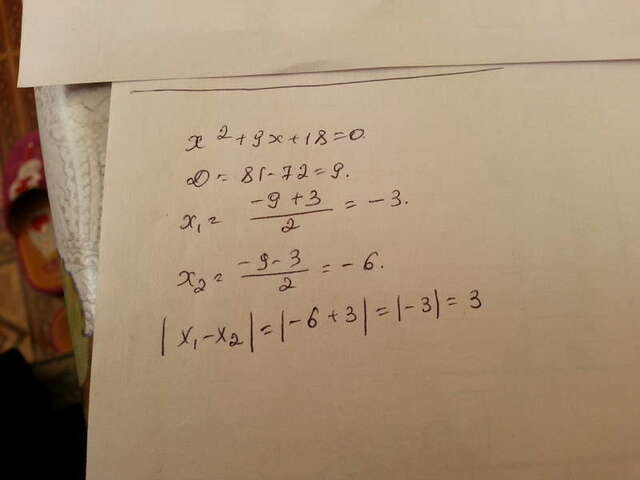 x² + 9x + 18 = 0
D = 81 - 72 = 9.
x₁ = (-9 + 3)/2 = -3.
x₂ = (-9 - 3)/2 = -6.
|x₁ - x₂| = |-6 + 3| = |-3| = 3